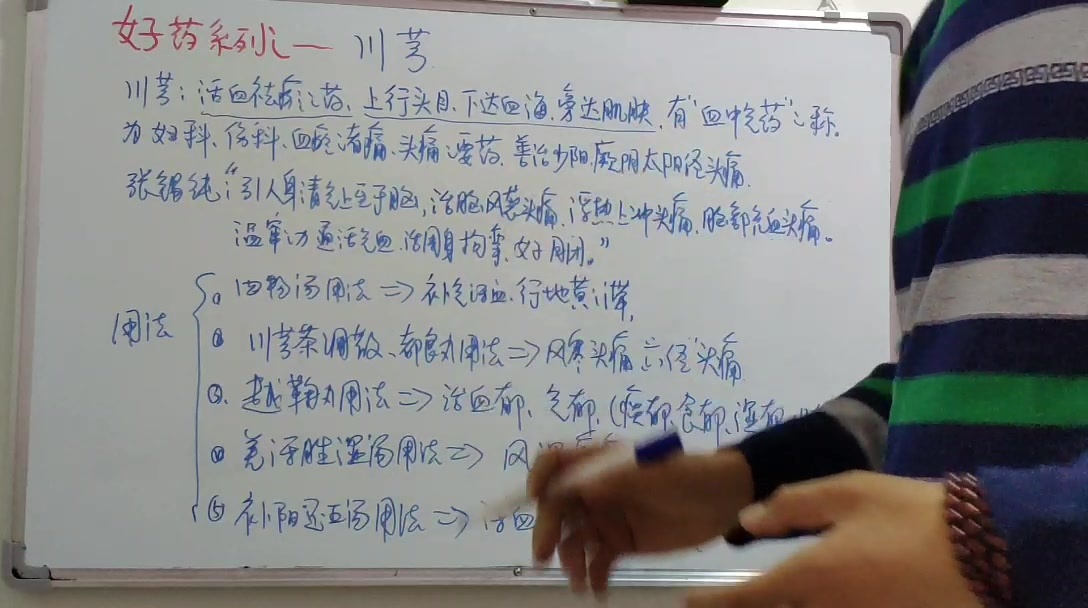 好药系列之一 川芎
川芎：活血祛瘀之药，上行头目，下达血海，旁达肌肤，有“血中气药”之称。
为妇科、伤科、血瘀诸痛、头痛之要药，善治少阳、厥阴、太阳经头痛。
张锡纯：“引人身清气上至于脑，治脑风袭头痛，浮热上冲头痛，脑部充血头痛。
温窜力通活气血，治周身拘挛，女子月闭。”
用法
① 四物汤用法⇒补气活血，行地黄之滞，
② 川芎茶调散、都良丸用法⇒风寒头痛 六经头痛
③ 越鞠丸用法⇒活血郁、气郁，（痰郁、食郁、湿郁、
④ 羌活胜湿汤用法⇒风
⑤ 补阳还五汤用法⇒活血